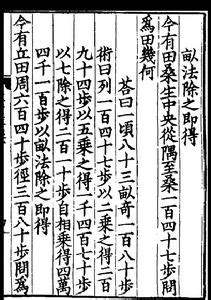 畝法除之即得
今有田桑生中央從隅至桑一百四十七步問
爲田幾何
荅曰一頃八十三畝奇一百八十步
術曰列一百四十七步以二乘之得二百
九十四步以五乘之得一千四百七十步
以七除之得二百一十步自相乘得四萬
四千一百步以畝法除之即得
今有丘田周六百四十步徑三百八十步問爲